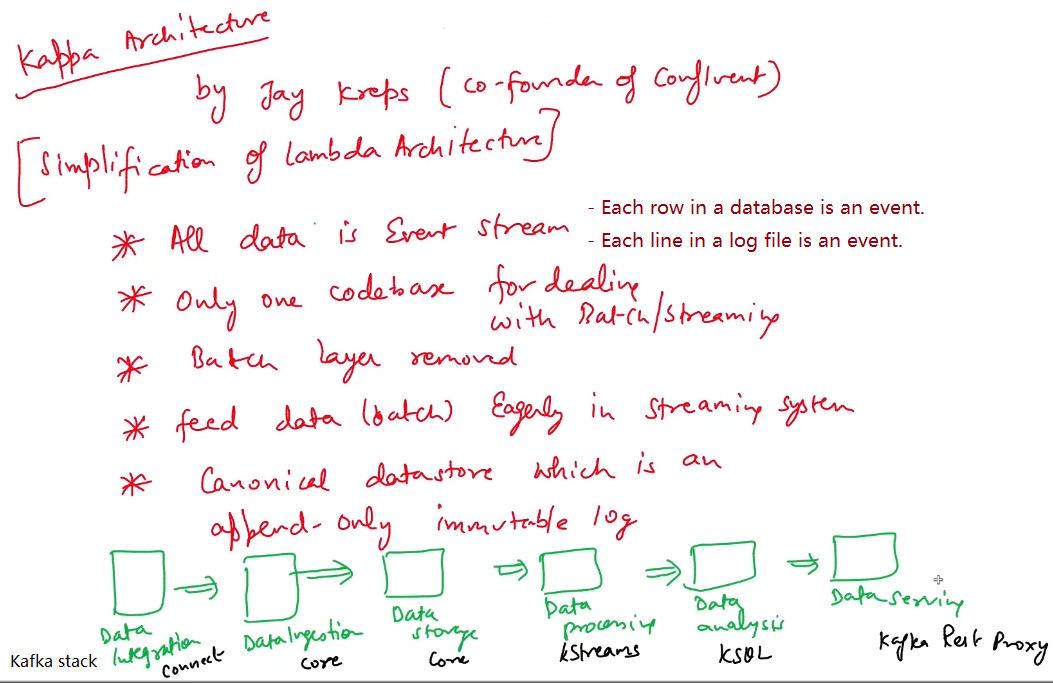 Kappa Architecture
by Jay Kreps (co-founder of Confluent)
[Simplification of Lambda Architecture]
* All data is Event stream
- Each row in a database is an event.
- Each line in a log file is an event.
* Only one codebase for dealing
with Batch/Streaming
* Batch layer removed
* feed data (batch) Eagerly in streaming system
* Canonical datastore which is an
append-only immutable log
Data Integration
Data Ingestion
Data storage
Data processing
Data analysis
Data serving
Kafka stack
Connect
Core
Core
KStreams
KSQL
Kafka Rest Proxy